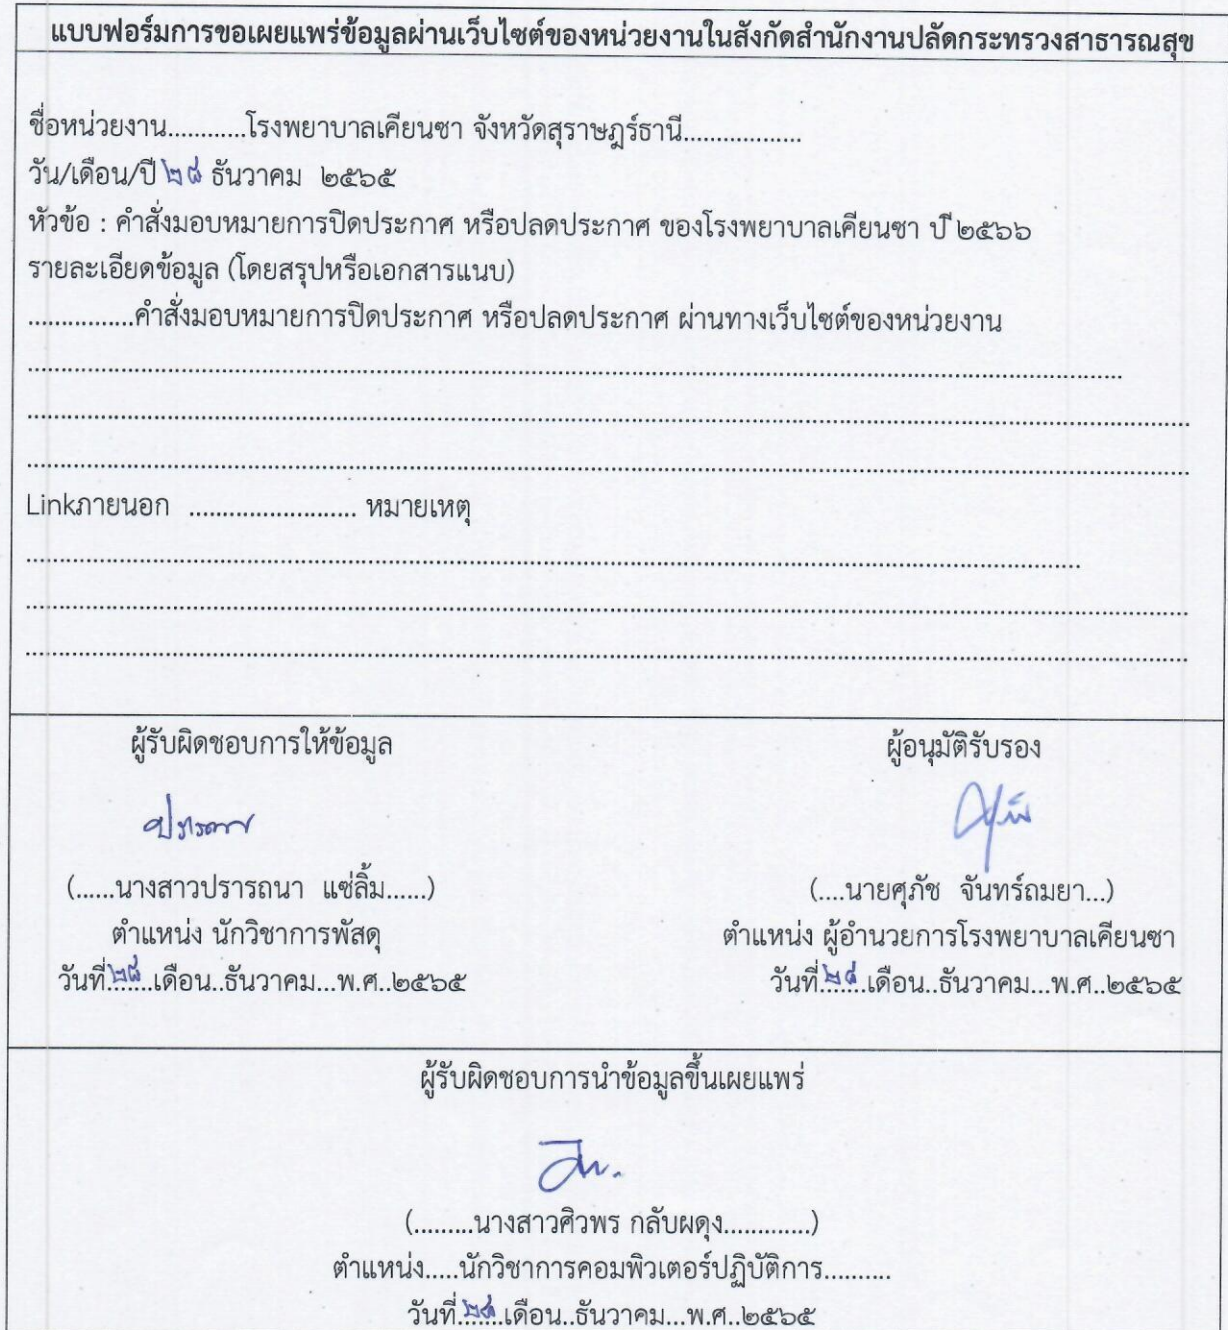 แบบฟอร์มการขอเผยแพร่ข้อมูลผ่านเว็บไซต์ของหน่วยงานในสังกัดสำนักงานปลัดกระทรวงสาธารณสุข
ชื่อหน่วยงาน............โรงพยาบาลเคียนซา จังหวัดสุราษฎร์ธานี..................
วัน/เดือน/ปี ๒๘ ธันวาคม ๒๕๖๕
หัวข้อ : คำสั่งมอบหมายการปิดประกาศ หรือปลดประกาศ ของโรงพยาบาลเคียนซา ปี ๒๕๖๖
รายละเอียดข้อมูล (โดยสรุปหรือเอกสารแนบ)
................คำสั่งมอบหมายการปิดประกาศ หรือปลดประกาศ ผ่านทางเว็บไซต์ของหน่วยงาน
Linkภายนอก ......................... หมายเหตุ
ผู้รับผิดชอบการให้ข้อมูล
ปรารถนา
(......นางสาวปรารถนา แซ่ลิ้ม......)
ตำแหน่ง นักวิชาการพัสดุ
วันที่.๒๘..เดือน..ธันวาคม...พ.ศ..๒๕๖๕
ผู้อนุมัติรับรอง
(....นายศุภัช จันทร์ถมยา...)
ตำแหน่ง ผู้อำนวยการโรงพยาบาลเคียนซา
วันที่.๒๘..เดือน..ธันวาคม...พ.ศ..๒๕๖๕
ผู้รับผิดชอบการนำข้อมูลขึ้นเผยแพร่
(.........นางสาวศิวพร กลับผดุง.............)
ตำแหน่ง.....นักวิชาการคอมพิวเตอร์ปฏิบัติการ..........
วันที่.๒๘..เดือน..ธันวาคม...พ.ศ..๒๕๖๕